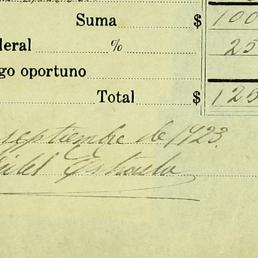 Suma $ 100
deral % 25
go oportuno
Total $ 125
septiembre de 1923.